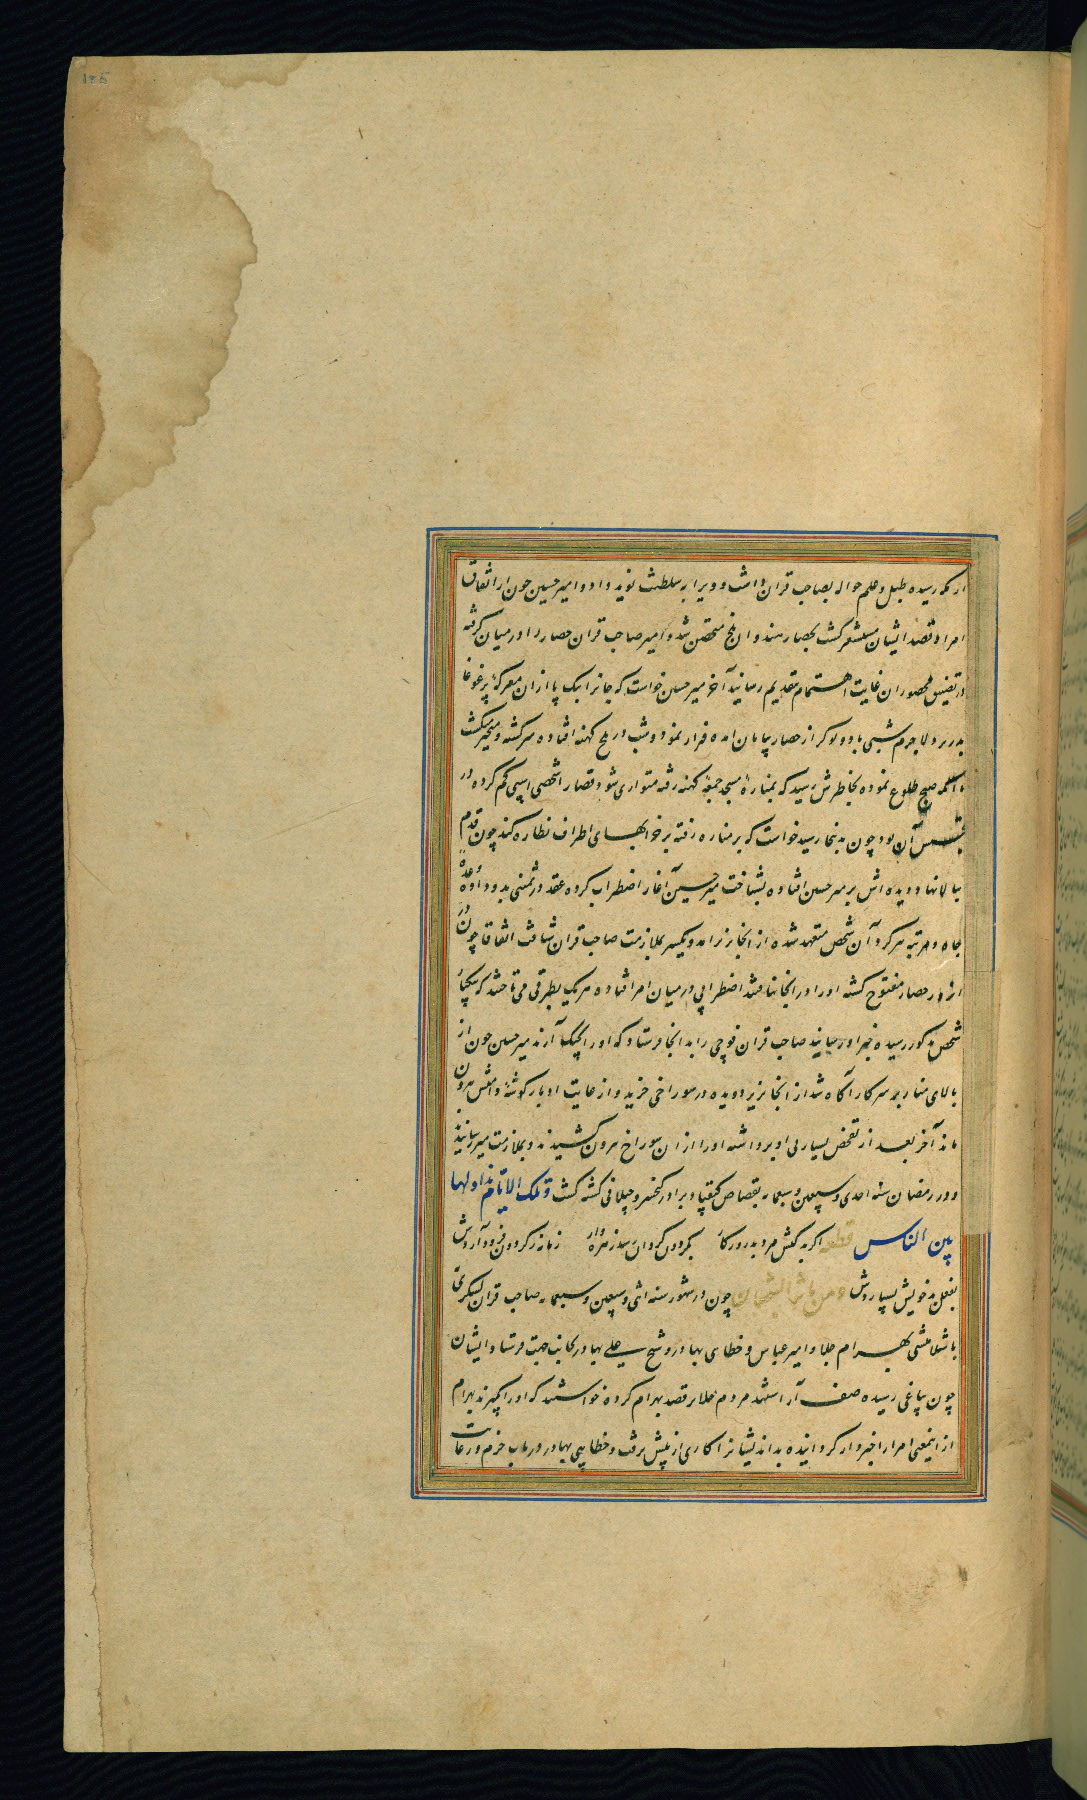 185
از مکه رسیده طبل و علم حواله بصاحب قران داشت و ویرا به سلطنت نوید داد و امیر حسین چون از اتفاق
امرا و قصد ایشان مستشعر کشت بحصار هندوان بلخ متحصن شد و امیر صاحب قران حصار را در میان کرفته
در تضییق محصوران غایت اهتمام بتقدیم رسانید آخر میر حسین خواست که جانرا بتک پا از ان معرکهٔ پر غوغا
بدر برد لاجرم شبی با دو نوکر از حصار پایان امده فرار نمود و شب در بلخ کهنه افتاده سرکشته و متحیر میکشت
تا آنکه صبح طلوع نموده بخاطرش رسید که بمنارهٔ مسجد جمعهٔ کهنه رفته متواری شود قضا را شخصی اسپی کم کرده در
تجسس آن بود چون بدانجا رسید خواست که بر مناره رفته بر خرابهای اطراف نظاره کند چون قدم
ببالا نهاد و دیده اش بر میر حسین افتاده بشناخت میر حسین آغاز اضطراب کرده عقد در ثمینی بدو داد و وعدهٔ
جاه و مرتبه سر کرد آن شخص متعهد شده از انجا بزیر امد و یکسر بملازمت صاحب قران شتافت اتفاقا چون در
ان روز حصار مفتوح کشته او را در انجا نیافتند اضطرابی در میان امرا افتاده هر یک بطرفی می تاختند که یکبار
شخص مذکور رسیده خبر او رسانید صاحب قران فوجی را بدانجا فرستاد که او را بچنک آرند میر حسین چون از
بالای منار بر سر کار آکاه شد از انجا بزیر دویده در سوراخی خزید و از غایت ادبار کوشهٔ دامنش بیرون
ماند آخر بعد از تفحص بسیار پی او برداشته او را از ان سوراخ بیرون کشیدند و بملازمت میر رسانیدند
و در رمضان سنه احدی و سبعین و سبعمایه بقصاص کیقباد برادر کیخسرو ختلانی کشته کشت و تلک الایام نداولها
بین الناس قطعه اکر بد کنش مرد بد روزکار بکردون کردان رسد زهره وار زمانه ز کردون فرود آردش
بفعل بد خویش بسپاردش چون در شهور سنه اثنی و سبعین و سبعمایه صاحب قران لشکری
باشلامیشی بهرام جلایر و امیر عباس و خطای بهادر و شیخ علی بهادر بجانب جته فرستاد و ایشان
چون رسیده صف آراستند مردم جلایر قصد بهرام کرده خواستند که او را بکیرند بهرام
از اینمعنی امرا را خبردار کردانیده بداندیشانرا کاری از پیش نرفت و خطایی بهادر در باب حزم و رعایت